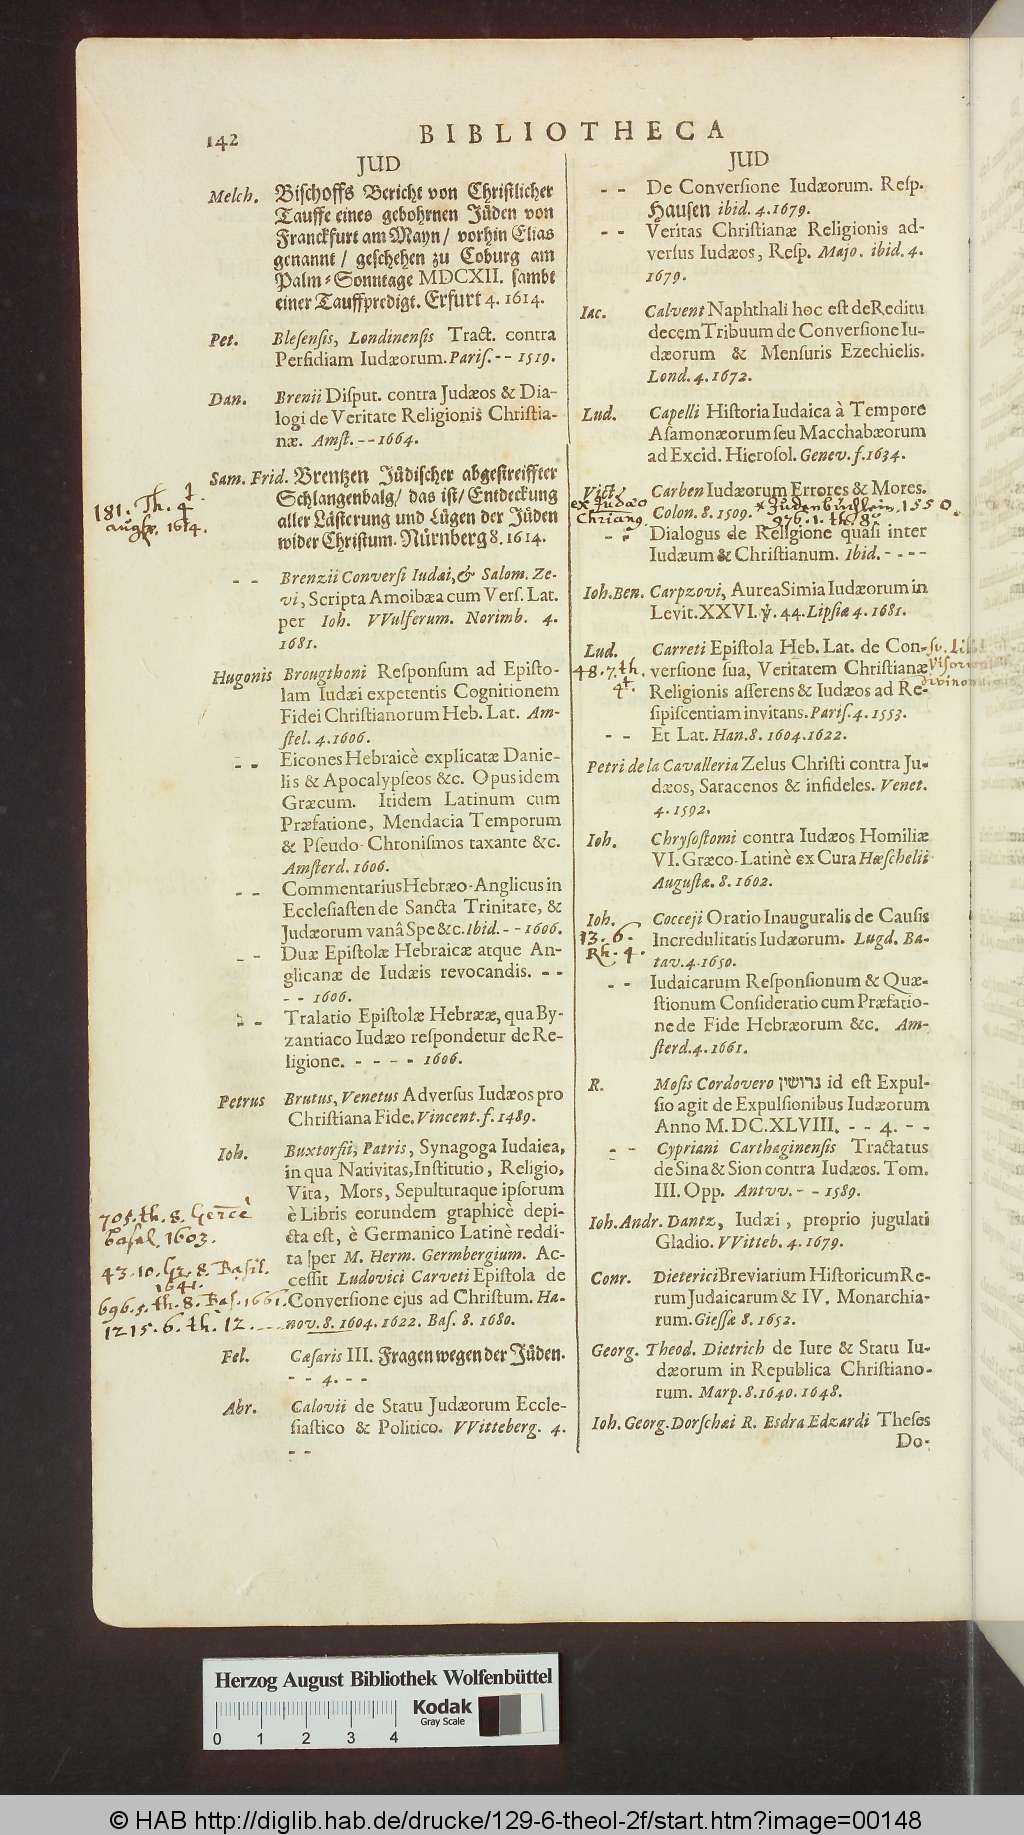 142
BIBLIOTHECA
JUD
Melch. Bischoffs Bericht von Christlicher
Tauffe eines gebohrnen Jüden von
Franckfurt am Mayn / vorhin Elias
genannt / geschehen zu Coburg am
Palm-Sonntage MDCXII. sambt
einer Tauffpredigt. Erfurt 4. 1614.
Pet. Blesensis, Londinensis Tract. contra
Persidiam Iudæorum. Paris. - - 1519.
Dan. Brenii Disput. contra Judæos & Dia-
logi de Veritate Religionis Christia-
næ. Amst. - - 1664.
Sam. Frid. Brentzen Jüdischer abgestreiffter
Schlangenbalg / das ist / Entdeckung
aller Lästerung und Lügen der Jüden
wider Christum. Nürnberg 8. 1614.
181. Th. 4
1614.
- - Brenzii Conversi Iudai, & Salom. Ze-
vi, Scripta Amoibæa cum Vers. Lat.
per Ioh. VVulferum. Norimb. 4.
1681.
Hugonis Brougthoni Responsum ad Episto-
lam Iudæi expetentis Cognitionem
Fidei Christianorum Heb. Lat. Am-
stel. 4. 1606.
- - Eicones Hebraicè explicatæ Danie-
lis & Apocalypseos &c. Opus idem
Græcum. Itidem Latinum cum
Præfatione, Mendacia Temporum
& Pseudo-Chronismos taxante &c.
Amsterd. 1606.
- - Commentarius Hebræo-Anglicus in
Ecclesiasten de Sancta Trinitate, &
Judæorum vanâ Spe &c. Ibid. - - 1606.
- - Duæ Epistolæ Hebraicæ atque An-
glicanæ de Iudæis revocandis. - -
- - 1606.
- - Tralatio Epistolæ Hebrææ, qua By-
zantiaco Iudæo respondetur de Re-
ligione. - - - - 1606.
Petrus Brutus, Venetus Adversus Iudæos pro
Christiana Fide. Vincent. f. 1489.
Ioh. Buxtorfii, Patris, Synagoga Iudaica,
in qua Nativitas, Institutio, Religio,
Vita, Mors, Sepulturaque ipsorum
è Libris eorundem graphicè depi-
cta est, è Germanico Latinè reddi-
ta per M. Herm. Germbergium. Ac-
cessit Ludovici Carveti Epistola de
Conversione ejus ad Christum. Ha-
nov. 8. 1604. 1622. Bas. 8. 1680.
705. th. 8.
Basel. 1603.
43. 10. 8. Basil.
1641.
696. 5. th. 8. Bas. 1661.
1215. 6. th. 12.
Fel. Cæsaris III. Fragen wegen der Jüden.
- - 4. - -
Abr. Calovii de Statu Judæorum Eccle-
siastico & Politico. VVitteberg. 4.
- -
JUD
- - De Conversione Iudæorum. Resp.
Hausen ibid. 4. 1679.
- - Veritas Christianæ Religionis ad-
versus Iudæos, Resp. Majo. ibid. 4.
1679.
Iac. Calvent Naphthali hoc est de Reditu
decem Tribuum de Conversione Iu-
dæorum & Mensuris Ezechielis.
Lond. 4. 1672.
Lud. Capelli Historia Iudaica à Tempore
Asamonæorum seu Macchabæorum
ad Excid. Hierosol. Genev. f. 1634.
Vict. Carben Iudæorum Errores & Mores.
Colon. 8. 1509. * Judenbüchlein. 1550.
ex Judæo
976. 1. th. 8°
- - Dialogus de Religione quasi inter
Iudæum & Christianum. Ibid. - - - -
Ioh. Ben. Carpzovi, Aurea Simia Iudæorum in
Levit. XXVI. ỳ. 44. Lipsiæ 4. 1681.
Lud. Carreti Epistola Heb. Lat. de Con-
versione sua, Veritatem Christianæ
Religionis asserens & Iudæos ad Re-
sipiscentiam invitans. Paris. 4. 1553.
48. 7. th.
4t.
- - Et Lat. Han. 8. 1604. 1622.
Petri de la Cavalleria Zelus Christi contra Ju-
dæos, Saracenos & infideles. Venet.
4. 1592.
Ioh. Chrysostomi contra Iudæos Homiliæ
VI. Græco-Latinè ex Cura Hœschelii
Augustæ. 8. 1602.
Ioh. Cocceji Oratio Inauguralis de Causis
Incredulitatis Iudæorum. Lugd. Ba-
tav. 4. 1650.
13. 6.
Rh. 4.
- - Iudaicarum Responsionum & Quæ-
stionum Consideratio cum Præfatio-
ne de Fide Hebræorum &c. Am-
sterd. 4. 1661.
R. Mosis Cordovero גרושין id est Expul-
sio agit de Expulsionibus Iudæorum
Anno M. DC. XLVIII. - - 4. - -
- - Cypriani Carthaginensis Tractatus
de Sina & Sion contra Iudæos. Tom.
III. Opp. Antvv. - - 1589.
Ioh. Andr. Dantz, Iudæi, proprio jugulati
Gladio. VVitteb. 4. 1679.
Conr. Dieterici Breviarium Historicum Re-
rum Judaicarum & IV. Monarchia-
rum. Giessæ 8. 1652.
Georg. Theod. Dietrich de Iure & Statu Iu-
dæorum in Republica Christiano-
rum. Marp. 8. 1640. 1648.
Ioh. Georg. Dorschæi R. Esdra Edzardi Theses
Do-
Herzog August Bibliothek Wolfenbüttel
Kodak
Gray Scale
0 1 2 3 4
© HAB http://diglib.hab.de/drucke/129-6-theol-2f/start.htm?image=00148